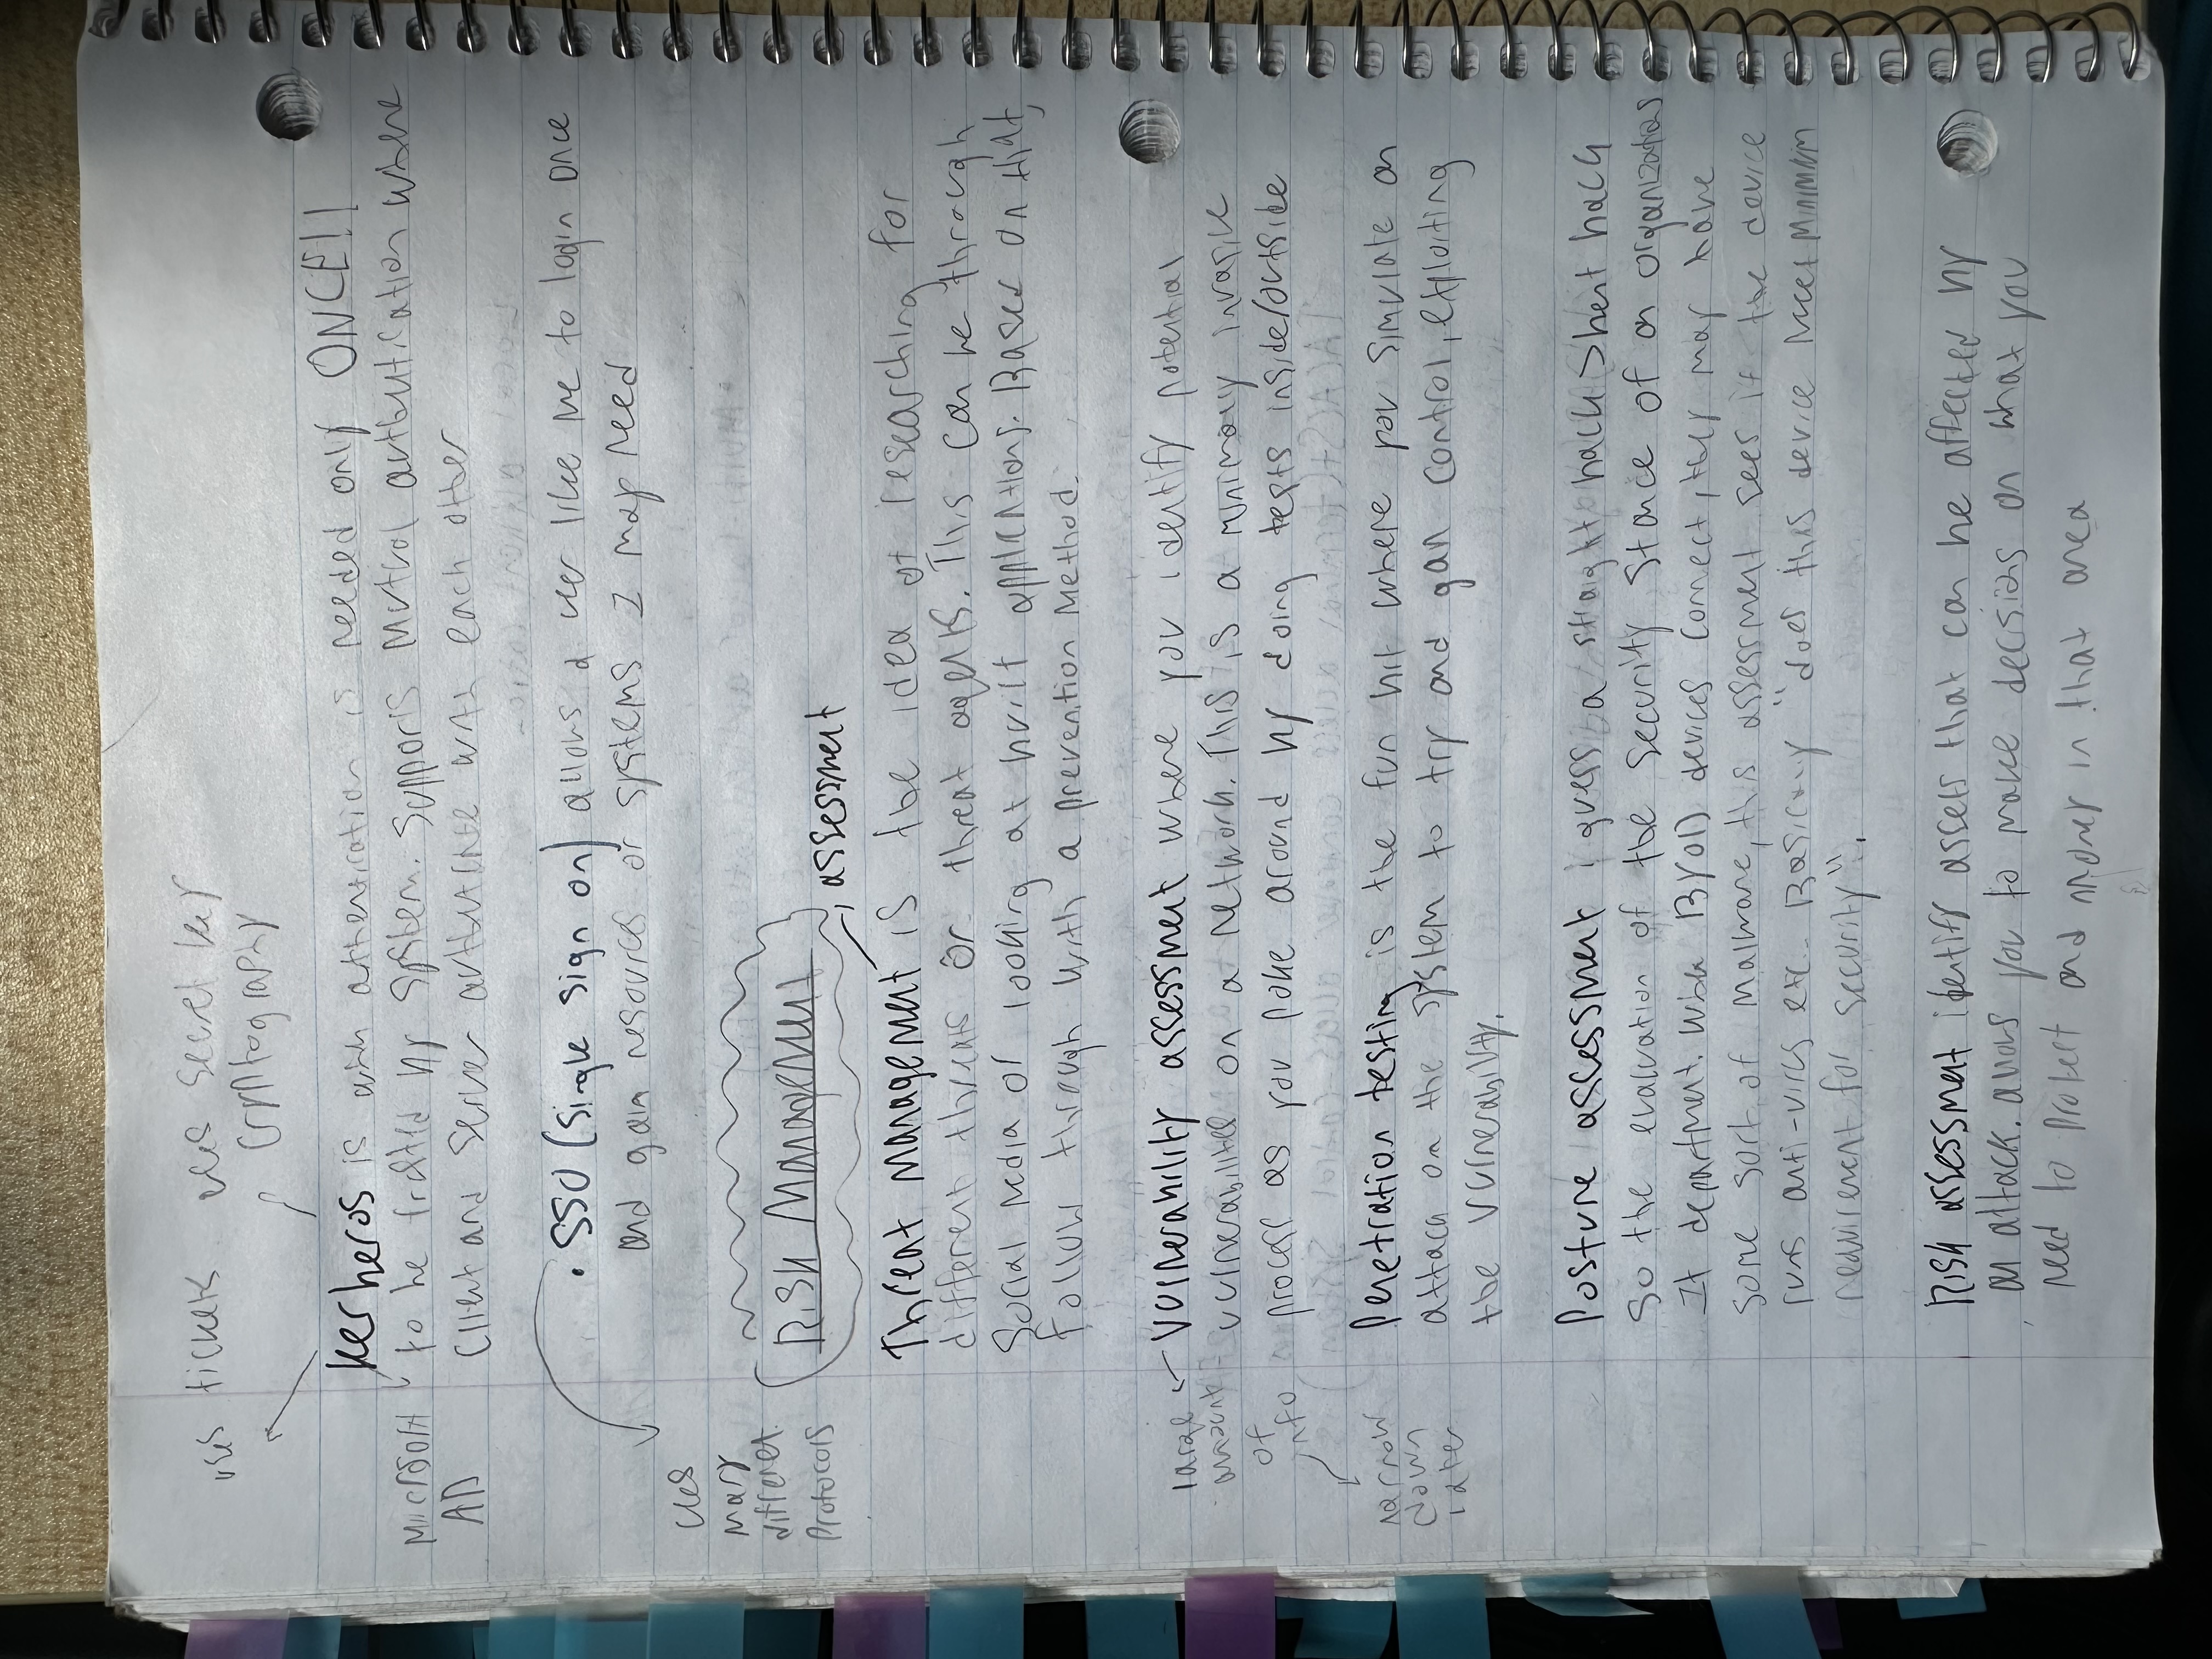 uses tickets uses secret key
cryptography
Kerberos is when authentication is needed only ONCE!!
to be trusted by system. Supports Mutual authentication where
Client and server authenticate with each other
Microsoft
AD
• SSO (single sign on) allows a user like me to login once
and gain resources or systems I may need
uses
many
different
protocols
Risk Management
assessment
Threat management is the idea of researching for
different threats or threat agents. This can be through
Social media or looking at built applications. Based on that,
follow through with a prevention method.
Vulnerability assessment where you identify potential
vulnerabilities on a network. This is a minimally invasive
process as you poke around by doing tests inside/outside
large
amount
of
info
narrow
down
later
Penetration testing is the fun bit where you simulate an
attack on the system to try and gain control, exploiting
the vulnerability.
Posture assessment I guess a straight back > bent back
so the evaluation of the security stance of an organizations
It department. When BYOD devices connect, they may have
some sort of malware, this assessment sees if the device
runs anti-virus etc. Basically "does this device meet minimum
requirement for security".
Risk assessment identify assets that can be affected by
an attack. allows you to make decisions on what you
need to protect and money in that area